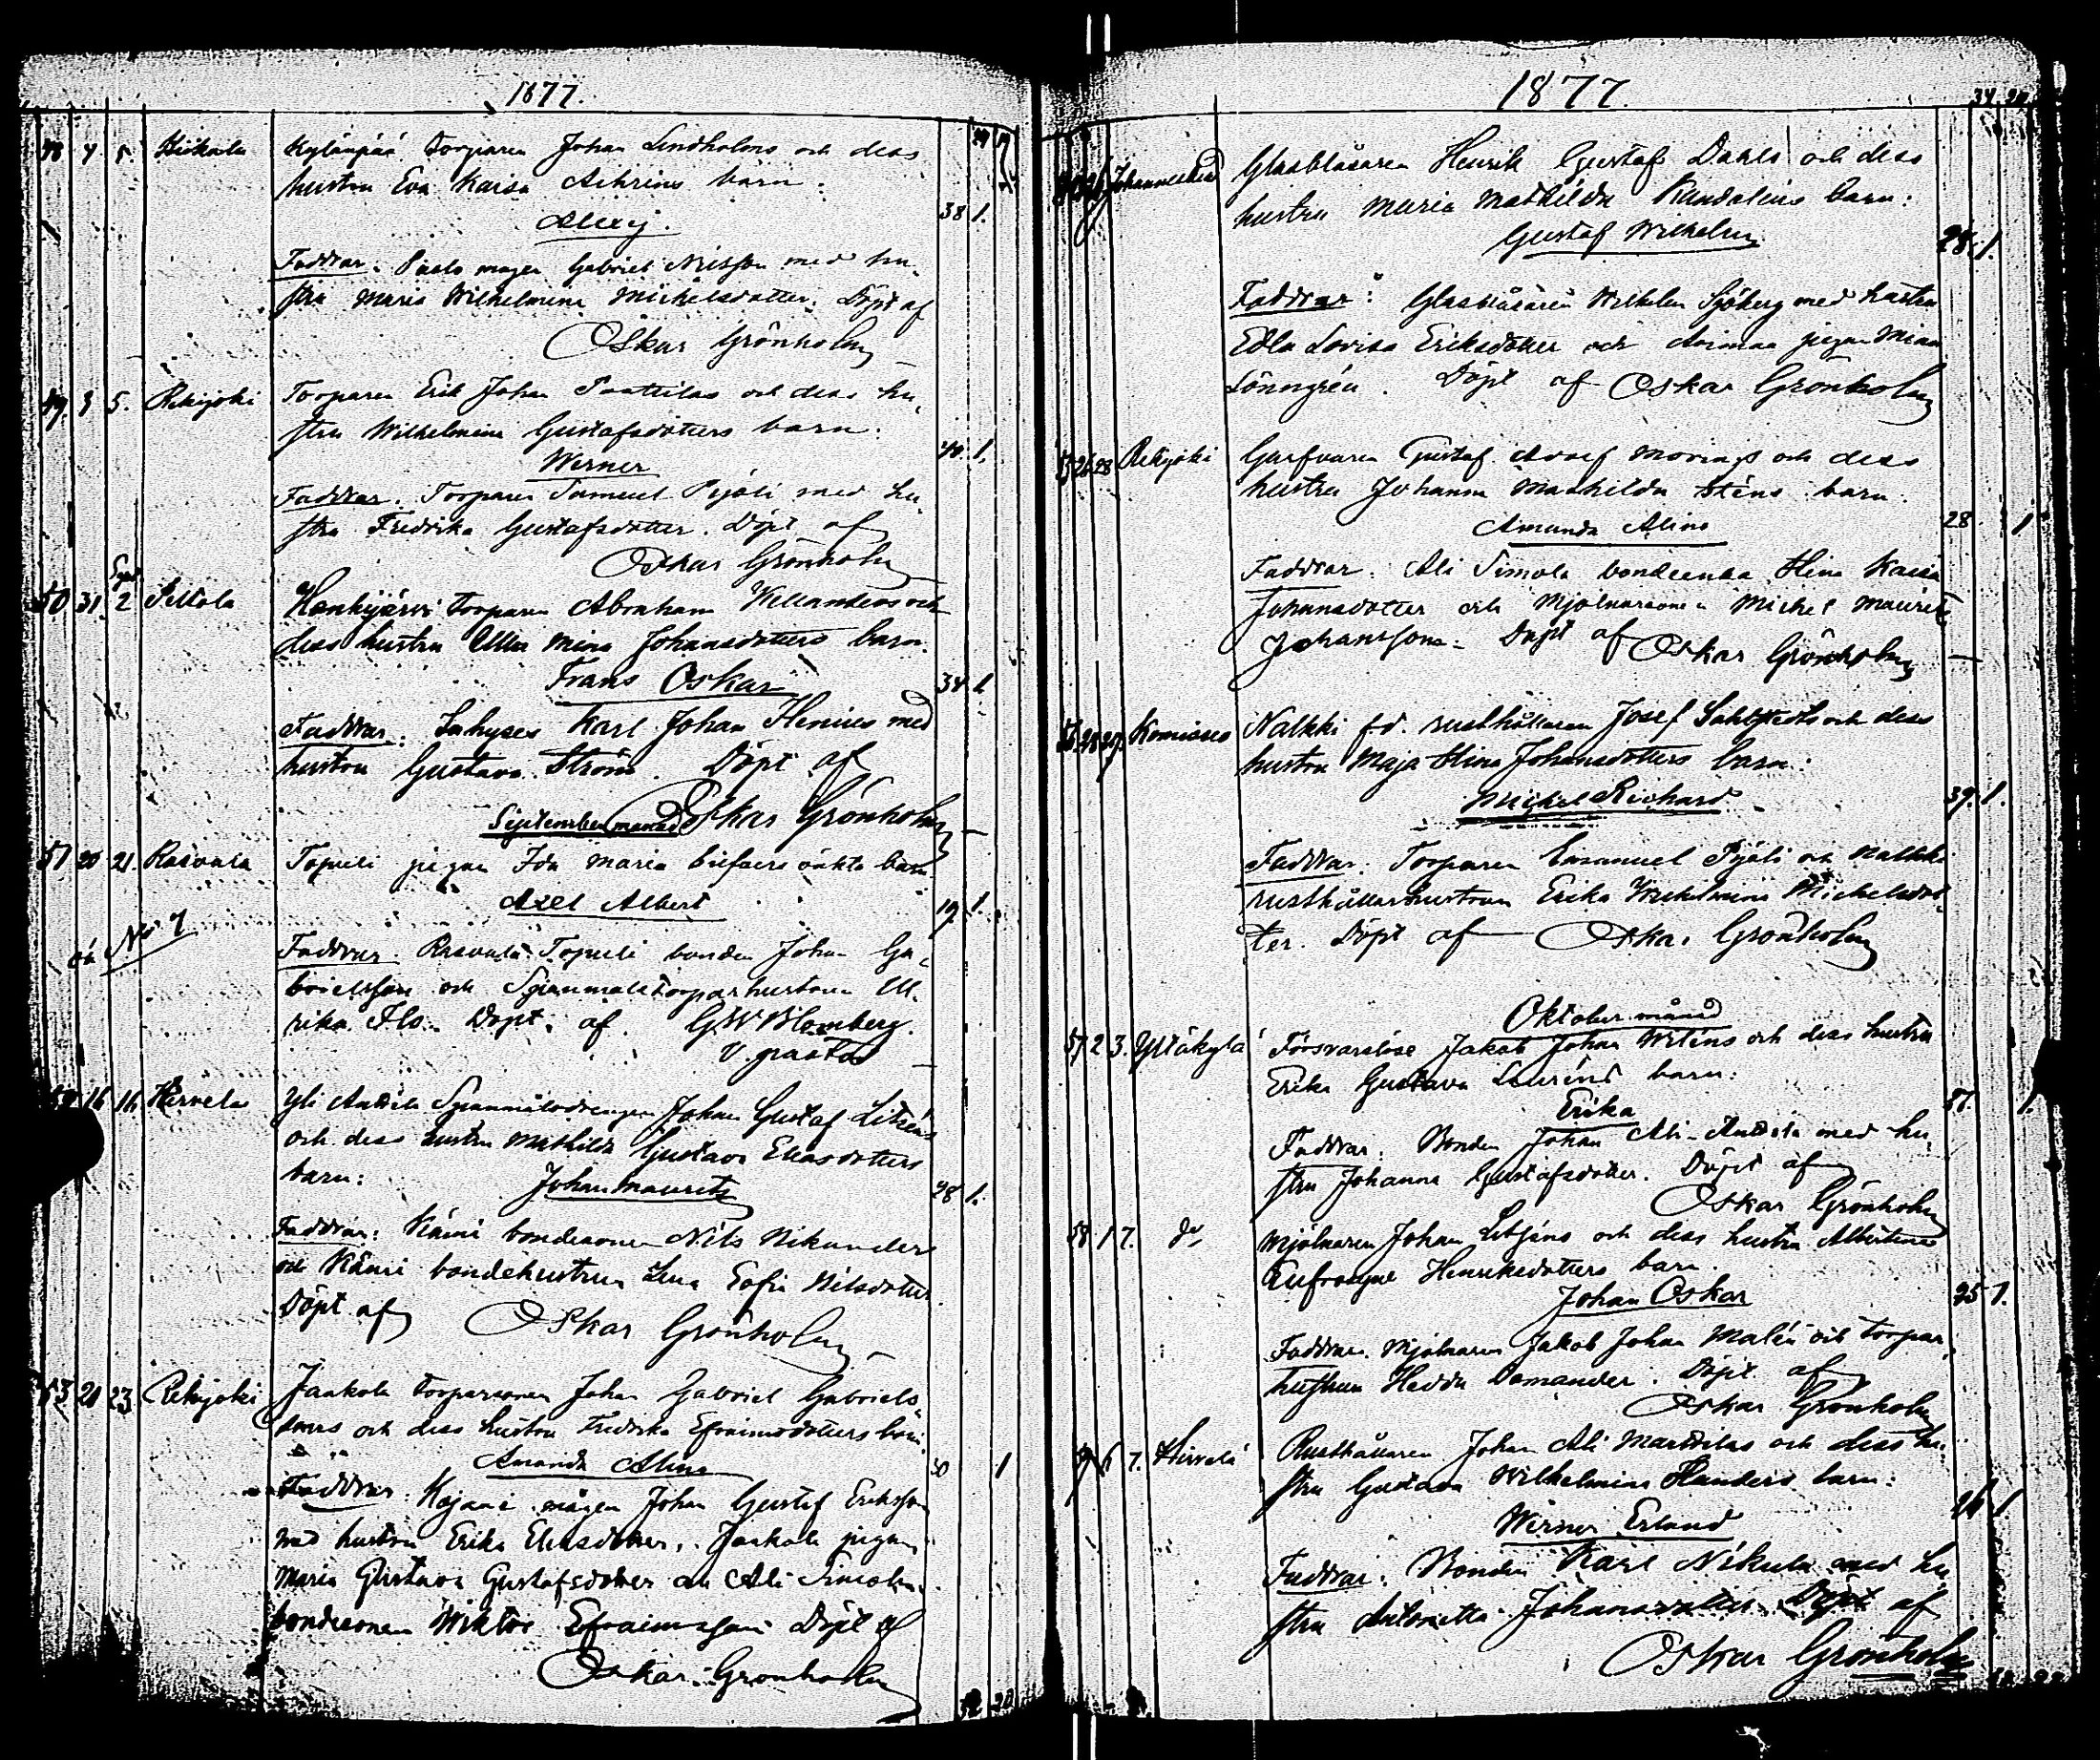 1877.
48 4 5. Hirvelä Kylänpää torparen Johan Lindholms och dess
hustru Eva Kaisa barn:
Alexej. 38 1.
Faddrar: mågen Gabriel Nilsson med hu-
stru Maria Wilhelmina Michelsdotter. Döpt af
Oskar Grönholm
49. 3 5. Rekijoki Torparen Erik Johan Paattilas och dess hu-
stru Wilhelmina Gustafsdotters barn:
Werner 40. 1.
Faddrar: Torparen Samuel Pijoli med hu-
stru Fredrika Gustafsdotter. Döpt af
Oskar Grönholm
50 31 Sept. 2 Piltola Hankijärvi torparen Abraham och
dess hustru Ulla Mina Johansdotters barn.
Frans Oskar 34 1.
Faddrar: Inhyses Karl Johan Henius med
hustru Gustava Ström. Döpt af
Oskar Grönholm
September månad
51 20 21. Rasvala Topuli pigan Ida Maria oäkta barn
Axel Albert 19 1.
oä No 7
Faddrar: Rasvala Topuli bonden Johan Ga-
brielsson och torparhustrun Ul-
rika Flo. Döpt af G W Blomberg.
V. pastor
52 16 16. Hirvelä Yli Anttila Johan Gustaf
och dess hustru Mathilda Gustava Eliasdotters
barn: Johan Mauritz 28 1.
Faddrar: Känni bondesonen Nils Nikander
och Känni bondehustrun Lena Sofia Nilsdotter.
Döpt af Oskar Grönholm
53 20 23. Rekijoki Jaakola torparsonen Johan Gabriel Gabriels-
sons och dess hustru Fredrika Efraimsdotters barn
Amanda Alina 30 1
Faddrar: Kajani mågen Johan Gustaf Eriksson
med hustru Erika Eliasdotter, Jaakola pigan
Maria Gustava Gustafsdotter och Ali Simola
bondesonen Wiktor Efraimsson Döpt af
Oskar Grönholm
1877.
Johanneslund Glasblåsaren Henrik Gustaf Dahls och dess
hustru Maria Mathilda barn:
Gustaf Wilhelm 28. 1.
Faddrar: Glasblåsaren Wilhelm Sjöberg med hustru
Edla Lovisa Eriksdotter och pigan Mina
Lönngrén. Döpt af Oskar Grönholm
55 26 28 Rekijoki Garfvaren Gustaf Adolf Morings och dess
hustru Johanna Mathilda Sténs barn:
Amanda Alina 28 1
Faddrar: Ali Simola Stina Kaisa
Johansdotter och Mjölnaresonen Michel Mauritz
Johansson. Döpt af Oskar Grönholm
56. 28 29. Komisuo Nalkki f.d. rusthållaren Josef Sahlstedts och dess
hustru Maja Stina Johansdotters barn:
Michel Richard 39. 1.
Faddrar: Torparen Emanuel Pijoli och Nalkki
rusthållarhustrun Erika Wilhelmina Michelsdot-
ter. Döpt af Oskar Grönholm
Oktober månad
57 2 3. Ylläkylä Försvarslöse Jakob Johan Wiléns och dess hustru
Erika Gustava Lauréns barn:
Erika 37. 1.
Faddrar: Bonden Johan Ali-Anttila med hu-
stru Johanna Gustafsdotter. Döpt af
Oskar Grönholm
58. 1 7. do Mjölnaren Johan och dess hustru Albertina
Eufrosyne Henriksdotters barn.
Johan Oskar 25 1.
Faddrar: Mjölnaren Jakob Johan Malén och torpar-
hustrun Hedda Domander. Döpt af
Oskar Grönholm
59 6 7. Hirvelä Rusthållaren Johan Ali Marttilas och dess hu-
stru Gustava Wilhelmina barn:
Werner Erland 26 1
Faddrar: Bonden Karl Nikula med hu-
stru Antonetta Johansdotter. Döpt af
Oskar Grönholm